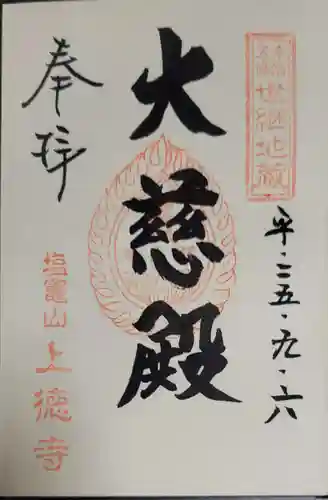 世継地蔵
平・二五・九・六
大慈殿
奉拝
塩竈山
上徳寺